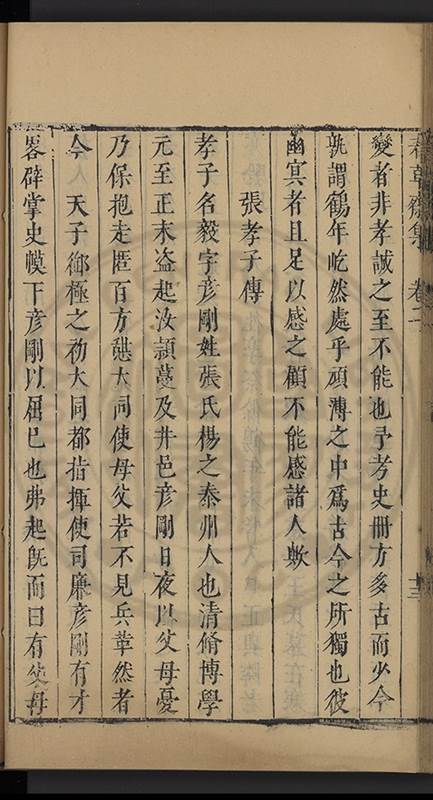 春草齋集 卷二
變者非孝誠之至不能也予考史册方多古而少今
孰謂鶴年屹然處乎頑薄之中爲古今之所獨也彼
幽冥者且足以感之顧不能感諸人歟
張孝子傳
孝子名毅字彦剛姓張氏楊之泰州人也清脩博學
元至正末盗起汝頴蔓及井邑彦剛日夜以父母憂
乃保抱走匿百方韙大同使母父若不見兵革然者
今 天子御極之初大同都指揮使司廉彦剛有才
畧辟掌史幙下彦剛以屈巳也弗起旣而曰有父母